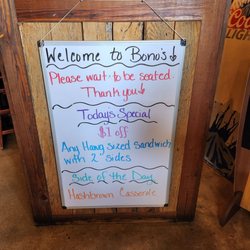 Welcome to Bono's
Please wait to be seated.
Thank you
Today's Special
$1 off
Any Hawg sized sandwich
with 2 sides
Side of the Day
Hashbrown Casserole